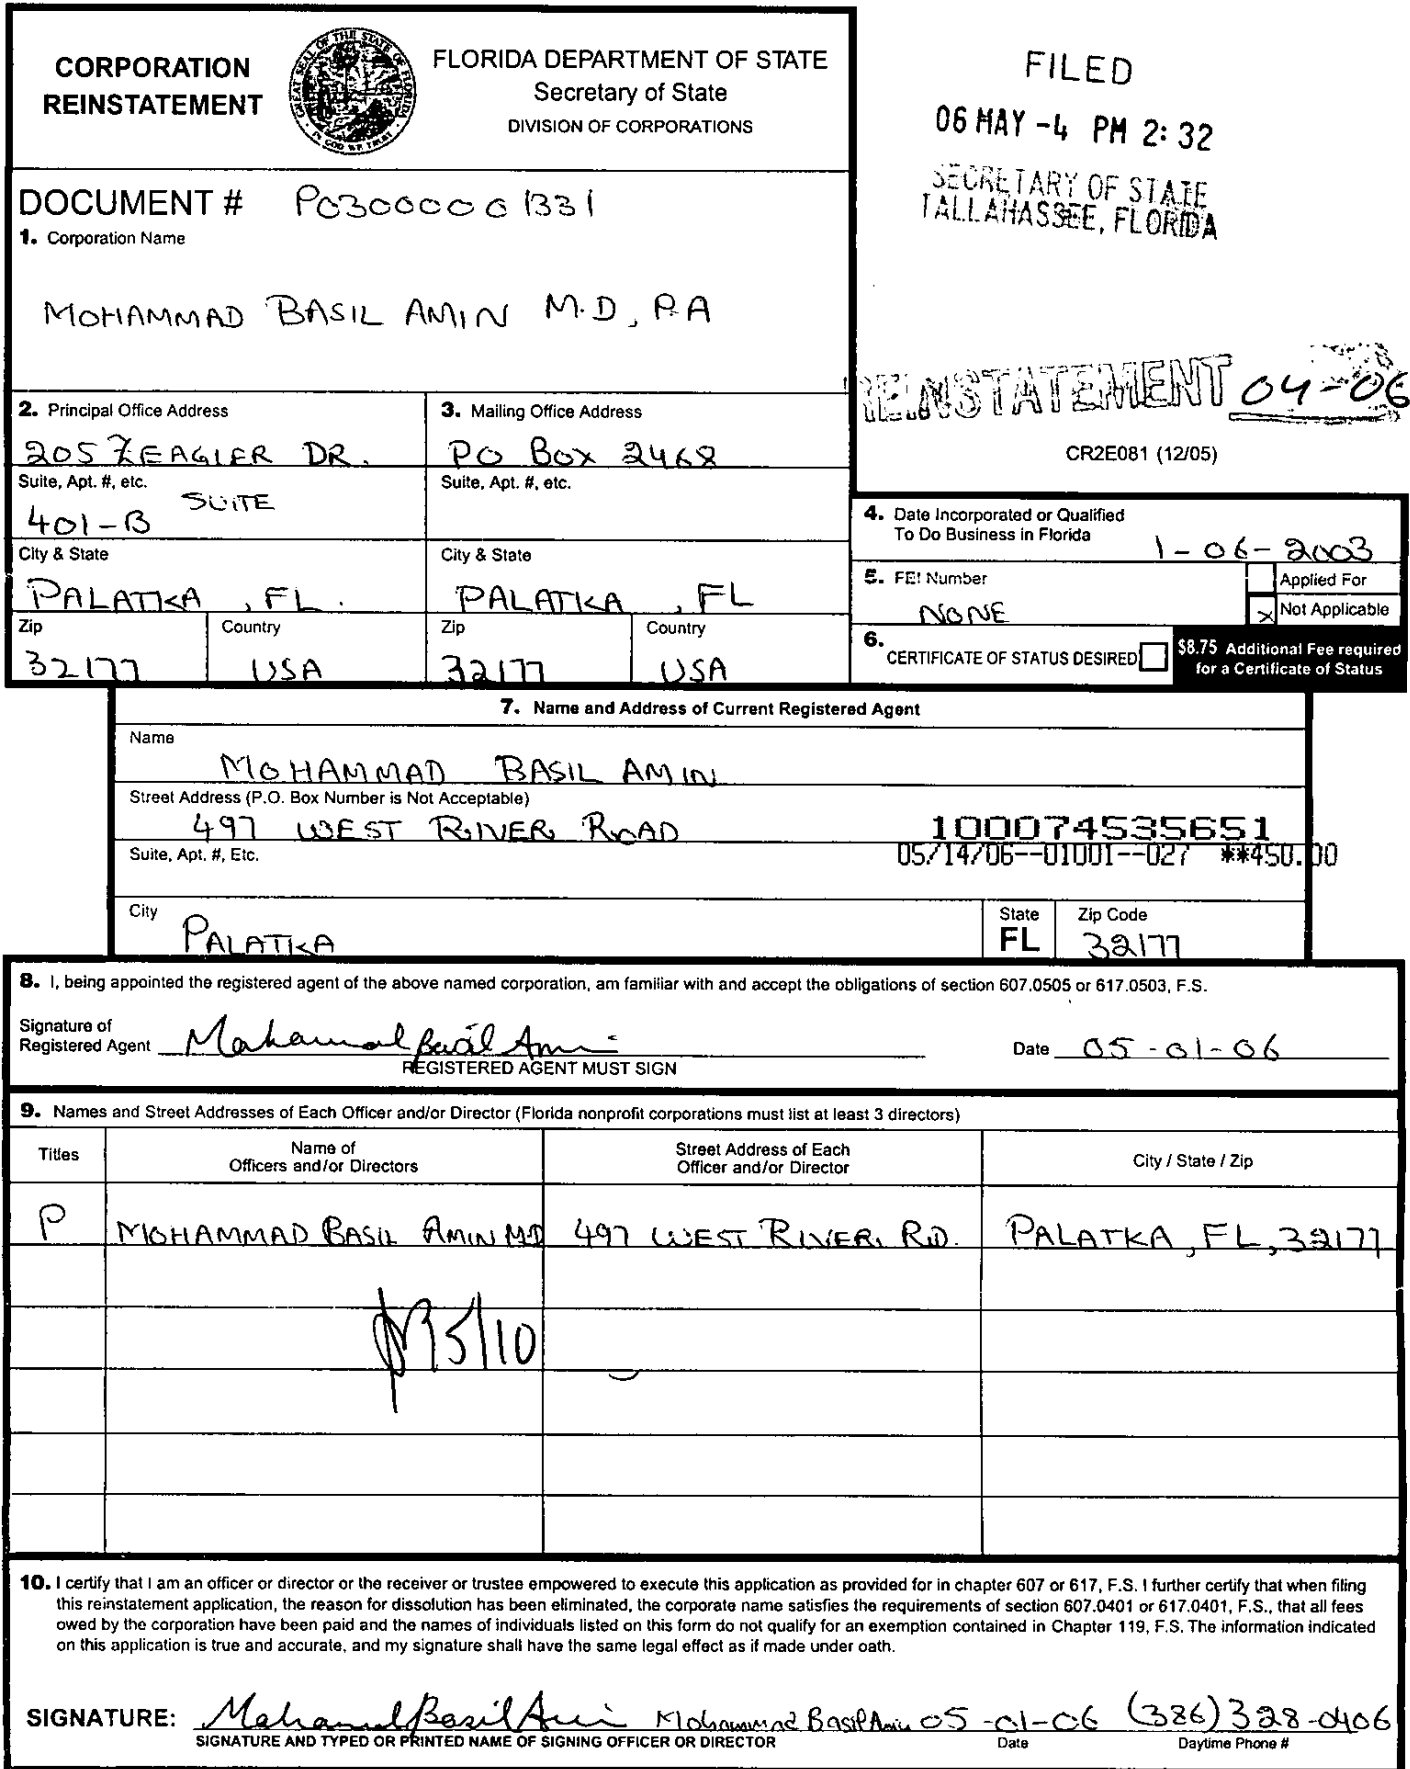 CORPORATION
REINSTATEMENT
FLORIDA DEPARTMENT OF STATE
Secretary of State
DIVISION OF CORPORATIONS
FILED
06 MAY -4 PM 2:32
SECRETARY OF STATE
TALLAHASSEE, FLORIDA
DOCUMENT # P03000001331
1. Corporation Name
MOHAMMAD BASIL AMIN M.D, P.A
REINSTATEMENT 04-06
CR2E081 (12/05)
2. Principal Office Address
205 ZEAGLER DR.
Suite, Apt. #, etc.
SUITE
401-B
City & State
PALATKA, FL.
Zip
32177
Country
USA
3. Mailing Office Address
PO BOX 2468
Suite, Apt. #, etc.
City & State
PALATKA, FL
Zip
32177
Country
USA
4. Date Incorporated or Qualified
To Do Business in Florida
1-06-2003
5. FEI Number
NONE
Applied For
X Not Applicable
6. CERTIFICATE OF STATUS DESIRED
$8.75 Additional Fee required
for a Certificate of Status
7. Name and Address of Current Registered Agent
Name
MOHAMMAD BASIL AMIN
Street Address (P.O. Box Number is Not Acceptable)
497 WEST RIVER ROAD
Suite, Apt. #, Etc.
1000074535651
05/14/06--01001--027 **450.00
City
PALATKA
State
FL
Zip Code
32177
8. I, being appointed the registered agent of the above named corporation, am familiar with and accept the obligations of section 607.0505 or 617.0503, F.S.
Signature of
Registered Agent Mohammad Basil Amin
REGISTERED AGENT MUST SIGN
Date 05-01-06
9. Names and Street Addresses of Each Officer and/or Director (Florida nonprofit corporations must list at least 3 directors)
Titles
Name of
Officers and/or Directors
Street Address of Each
Officer and/or Director
City / State / Zip
P MOHAMMAD BASIL AMIN MD 497 WEST RIVER RD. PALATKA, FL, 32177
5/10
10. I certify that I am an officer or director or the receiver or trustee empowered to execute this application as provided for in chapter 607 or 617, F.S. I further certify that when filing
this reinstatement application, the reason for dissolution has been eliminated, the corporate name satisfies the requirements of section 607.0401 or 617.0401, F.S., that all fees
owed by the corporation have been paid and the names of individuals listed on this form do not qualify for an exemption contained in Chapter 119, F.S. The information indicated
on this application is true and accurate, and my signature shall have the same legal effect as if made under oath.
SIGNATURE: Mohammad Basil Amin Mohammad Basil Amin 05-01-06 (386) 328-0406
SIGNATURE AND TYPED OR PRINTED NAME OF SIGNING OFFICER OR DIRECTOR
Date
Daytime Phone #